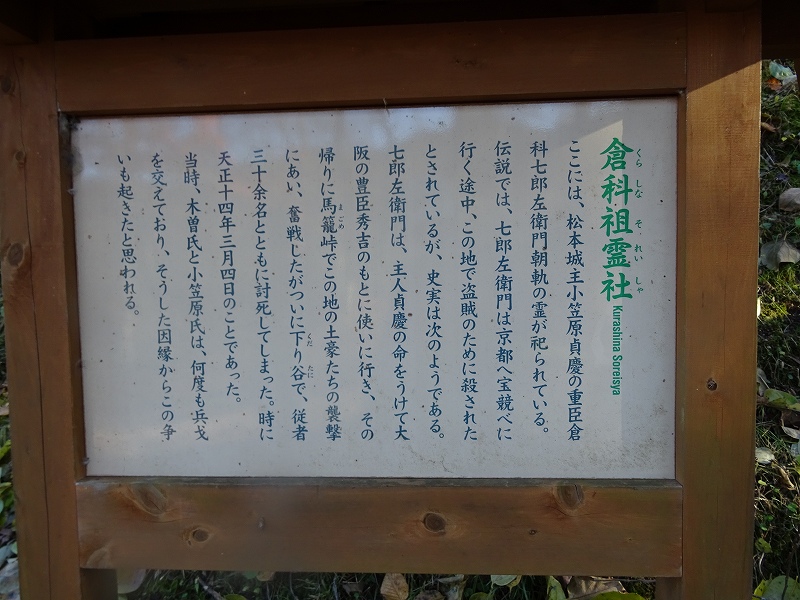 倉科祖霊社
くらしな それいしゃ
Kurashina Soreisya
ここには、松本城主小笠原貞慶の重臣倉
科七郎左衛門朝軌の霊が祀られている。
伝説では、七郎左衛門は京都へ宝競べに
行く途中、この地で盗賊のために殺された
とされているが、史実は次のようである。
七郎左衛門は、主人貞慶の命をうけて大
阪の豊臣秀吉のもとに使いに行き、その
帰りに馬籠峠でこの地の土豪たちの襲撃
まごめ
にあい、奮戦したがついに下り谷で、従者
くだ たに
三十余名とともに討死してしまった。時に
天正十四年三月四日のことであった。
当時、木曽氏と小笠原氏は、何度も兵戈
を交えており、そうした因縁からこの争
いも起きたと思われる。